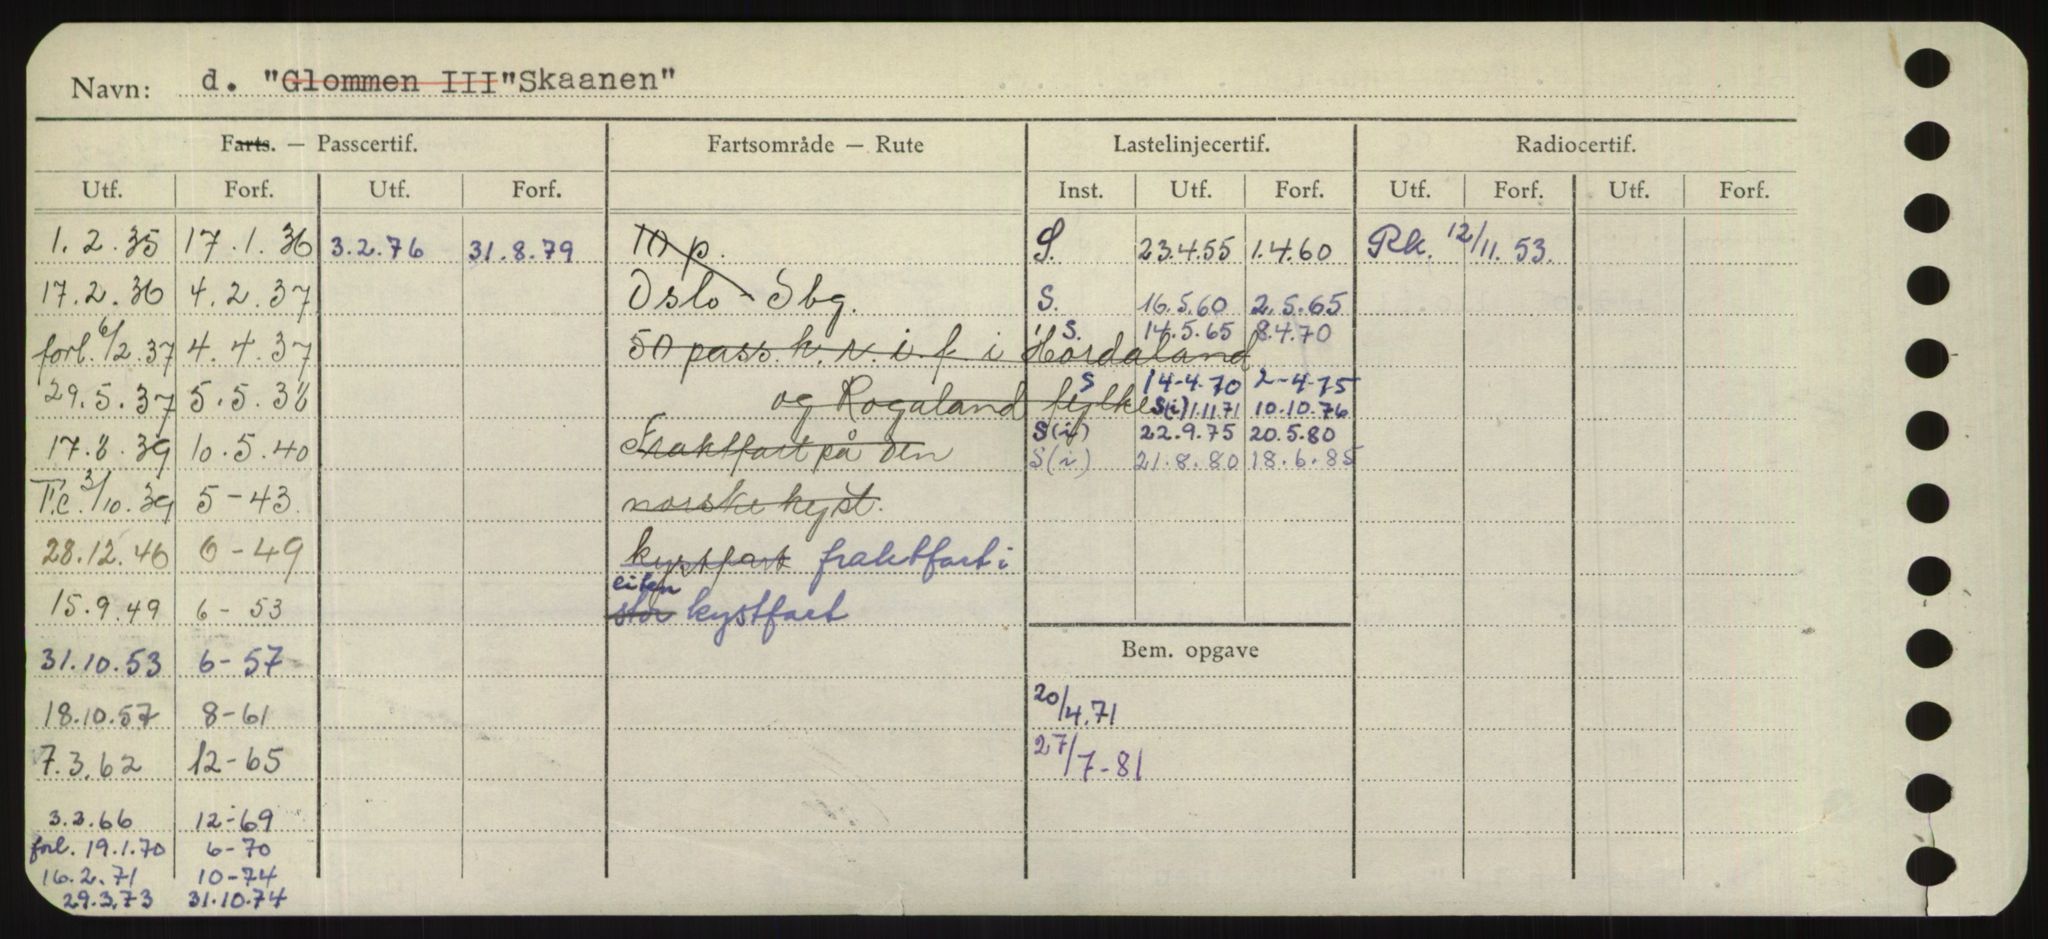 Navn: d. "Glommen III" "Skaanen"
Farts. — Passcertif. Fartsområde — Rute Lastelinjecertif. Radiocertif.
Utf. Forf. Utf. Forf. Inst. Utf. Forf. Utf. Forf. Utf. Forf.
1.2.35 17.1.36 3.2.76 31.8.79 10 p. S. 23.4.55 1.4.60 Rk. 12/11.53.
17.2.36 4.2.37 Oslo - Sbg. S. 16.5.60 2.5.65
S. 14.5.65 8.4.70
forl. 6/2.37 4.4.37 50 pass. k. r. i. f. i Hordaland
S 14-4.70 2-4-75
29.5.37 5.5.38 og Rogaland fylke S(i) 1.11.71 10.10.76
17.8.39 10.5.40 Fraktfart på den S(i) 22.9.75 20.5.80
S(i) 21.8.80 18.6.85
F.c. 3/10.39 5-43. norske kyst.
28.12.46 6-49 kystfart fraktfart i
liten
15.9.49 6-53 stor kystfart
31.10.53 6-57 Bem. opgave
18.10.57 8-61 20/4.71
7.3.62 12-65 27/7-81
3.3.66 12-69
forl. 19.1.70 6-70
16.2.71 10-74
29.3.73 31.10.74